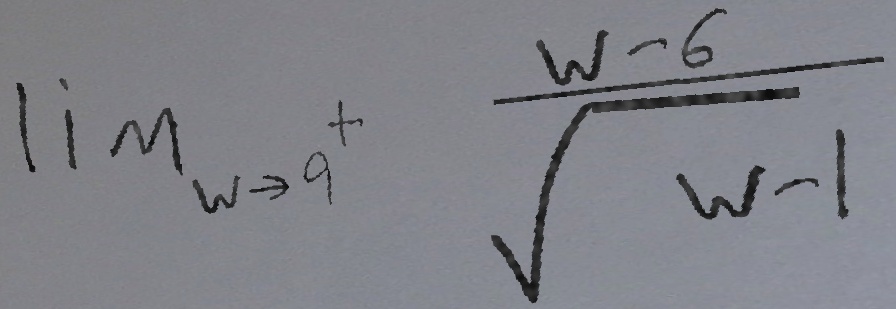 \lim_{w \to 9^+} \frac{w-6}{\sqrt{w-1}}